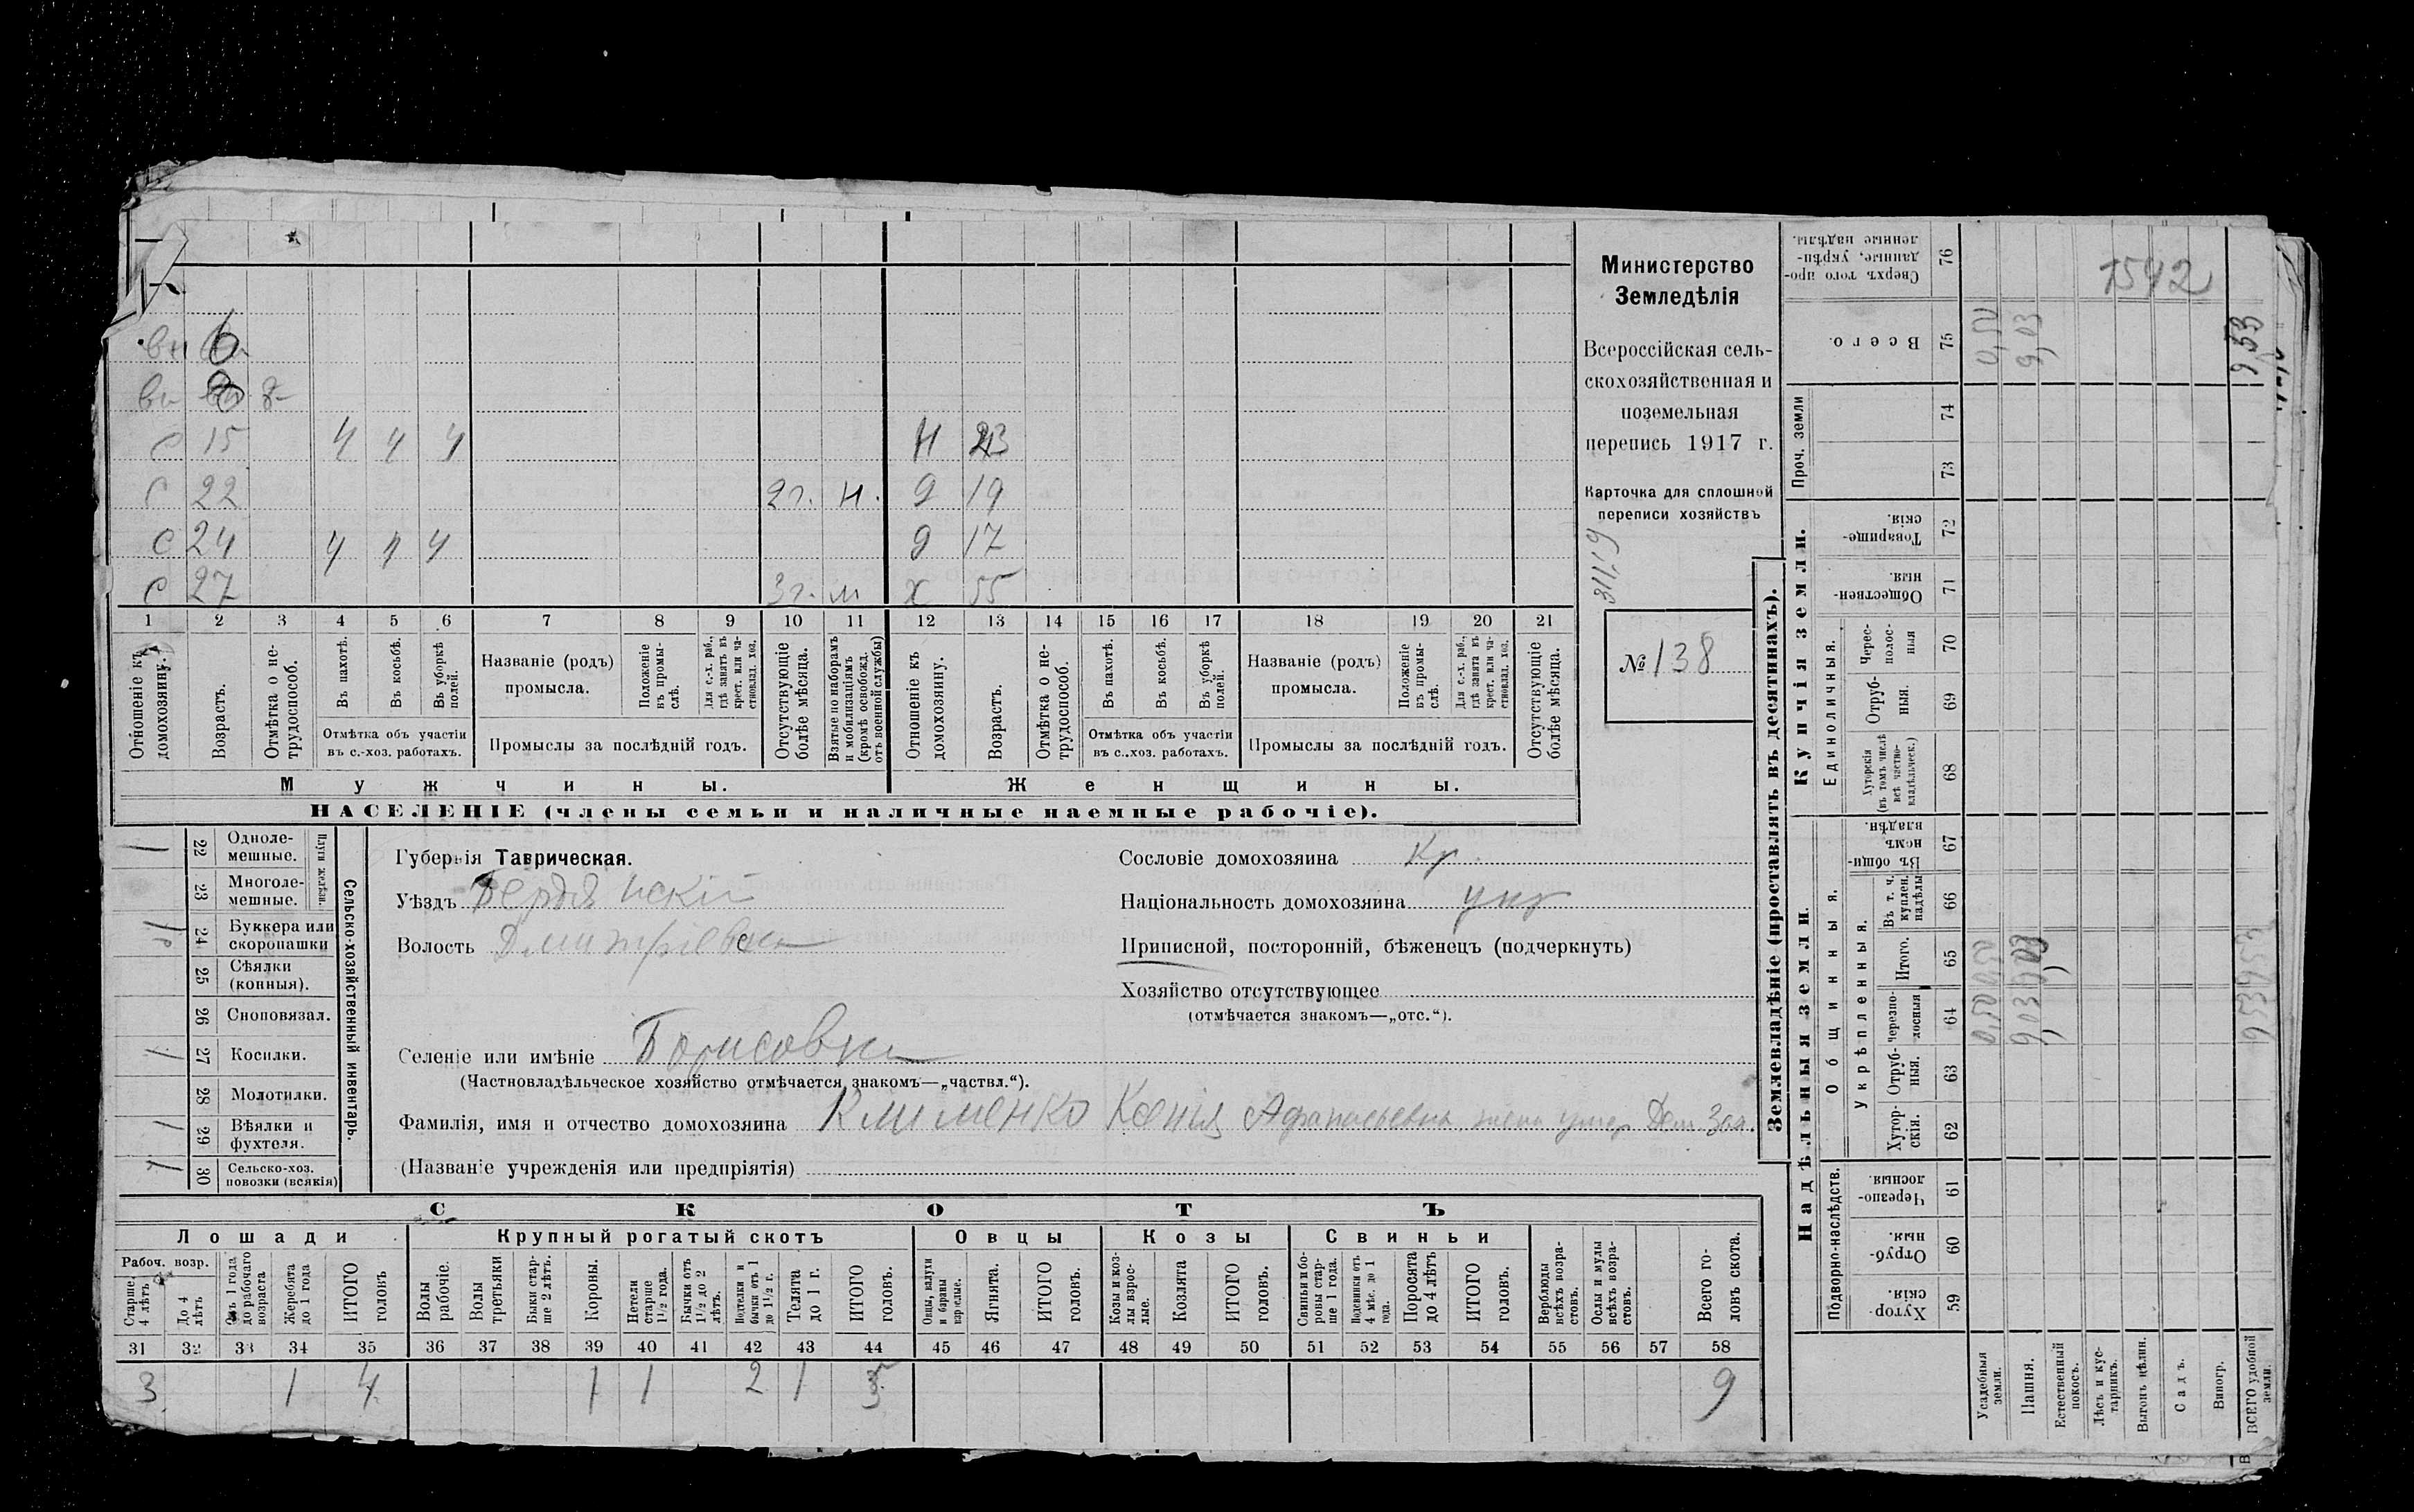 вн 6
вн 8
С 15 4 4 4 Н 23
С 22 2 г. н. д 19
С 24 4 4 4 д 17
С 27 3 г. м х 55
1 2 3 4 5 6 7 8 9 10 11 12 13 14 15 16 17 18 19 20 21
Отношеніе къ домохозяину.
Возрастъ.
Отмѣтка о не-
трудоспособ.
Въ пахотѣ.
Въ косьбѣ.
Въ уборкѣ
полей.
Отмѣтка объ участіи
въ с.-хоз. работахъ.
Названіе (родъ)
промысла.
Положеніе
въ промы-
слѣ.
Для с.-х. раб.,
гдѣ занятъ въ
крест. или ча-
стновлад. хоз.
Промыслы за послѣдній годъ.
Отсутствующіе
болѣе мѣсяца.
Взятые по наборамъ
и мобилизаціямъ
(кромѣ освобожд.
отъ военной службы)
Отношеніе къ
домохозяину.
Возрастъ.
Отмѣтка о не-
трудоспособ.
Въ пахотѣ.
Въ косьбѣ.
Въ уборкѣ
полей.
Отмѣтка объ участіи
въ с.-хоз. работахъ.
Названіе (родъ)
промысла.
Положеніе
въ промы-
слѣ.
Для с.-х. раб.,
гдѣ занята въ
крест. или ча-
стновлад. хоз.
Промыслы за послѣдній годъ.
Отсутствующіе
болѣе мѣсяца.
Мужчины.
Женщины.
НАСЕЛЕНІЕ (члены семьи и наличные наемные рабочіе).
Министерство
Земледѣлія
Всероссійская сель-
скохозяйственная и
поземельная
перепись 1917 г.
Карточка для сплошной
переписи хозяйствъ
№ 138
1 22 Одноле-
мешные.
23 Многоле-
мешные.
Плуги желѣзн.
1 24 Буккера или
скоропашки
25 Сѣялки
(конныя).
26 Сноповязал.
1 27 Косилки.
28 Молотилки.
1 29 Вѣялки и
фухтеля.
1 30 Сельско-хоз.
повозки (всякія)
Сельско-хозяйственный инвентарь.
Губернія Таврическая.
Уѣздъ Бердянскій
Волость Дмитріевск
Селеніе или имѣніе Борисовка
(Частновладѣльческое хозяйство отмѣчается знакомъ—„частвл.“).
Фамилія, имя и отчество домохозяина Клименко Ксенія Афанасьевна жена умер
(Названіе учрежденія или предпріятія)
Сословіе домохозяина Кр.
Національность домохозяина укр
Приписной, посторонній, бѣженецъ (подчеркнуть)
Хозяйство отсутствующее
(отмѣчается знакомъ—„отс.“).
СКОТЪ
Лошади Крупный рогатый скотъ Овцы Козы Свиньи
Рабоч. возр.
Старше
4 лѣтъ
До 4
лѣтъ
Отъ 1 года
до рабочаго
возраста
Жеребята
до 1 года
ИТОГО
головъ
Волы
рабочіе.
Волы
третьяки
Быки стар-
ше 2 лѣтъ.
Коровы.
Нетели
старше
1 1/2 года.
Бычки отъ
1 1/2 до 2
лѣтъ.
Подтелки и
бычки отъ 1
до 1 1/2 г.
Телята
до 1 г.
ИТОГО
головъ.
Овцы, валухи
и бараны
взрослые.
Ягнята.
ИТОГО
головъ.
Козы и коз-
лы взрос-
лые.
Козлята
ИТОГО
головъ.
Свиньи и бо-
ровы стар-
ше 1 года.
Подсвинки отъ
4 мѣс. до 1
года.
Поросята
до 4 лѣтъ
ИТОГО
головъ.
Верблюды
всѣхъ возра-
стовъ.
Ослы и мулы
всѣхъ возра-
стовъ.
Всего го-
ловъ скота.
31 32 33 34 35 36 37 38 39 40 41 42 43 44 45 46 47 48 49 50 51 52 53 54 55 56 57 58
3 1 4 1 1 2 1 5 9
Землевладѣніе (проставлять въ десятинахъ).
Надѣльныя земли. Купчія земли.
Подворно-наслѣдств.
Общинныя.
Укрѣпленныя.
Единоличныя.
Проч. земли
Хутор-
скія. 59
Отруб-
ныя. 60
Черезпо-
лосныя. 61
Хутор-
скія. 62
Отруб-
ныя. 63
Черезпо-
лосныя 64
Итого. 65
Въ т. ч.
куплен.
надѣлы 66
Въ общи-
номъ
владѣн. 67
Хуторскія
(въ томъ числѣ
всѣ частно-
владѣльческ.) 68
Отруб-
ныя. 69
Черес-
полос-
ныя 70
Обществен-
ныя. 71
Товарище-
скія. 72
73
74
Всего. 75
Сверхъ того про-
данные, укрѣп-
ленные надѣлы. 76
Усадебныя
земли. 0,50 0,50 0,50
Пашня. 9,03 9,03 9,03
Естественный
покосъ.
Лѣсъ и кус-
тарникъ.
Выгонъ цѣлин.
Садъ.
Виногр.
ВСЕГО удобной
земли. 9,53 9,53 9,53
1542